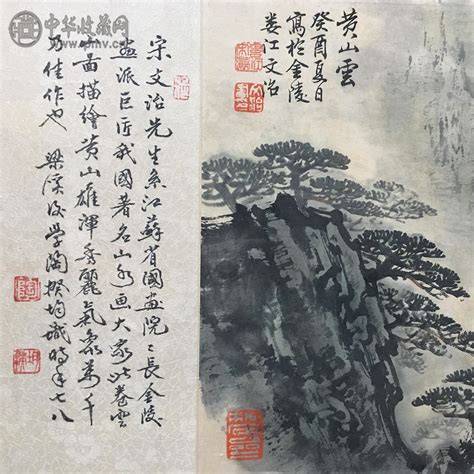 中华收藏网
黄山雲
癸酉夏日
寫於金陵
婁江文治
宋文治先生系江蘇省國畫院〻長金陵
畫派巨匠我國著名山水画大家此卷雲
圖描繪黄山雄渾秀麗氣象萬千
乃佳作也 梁溪後學陶均識時年七八